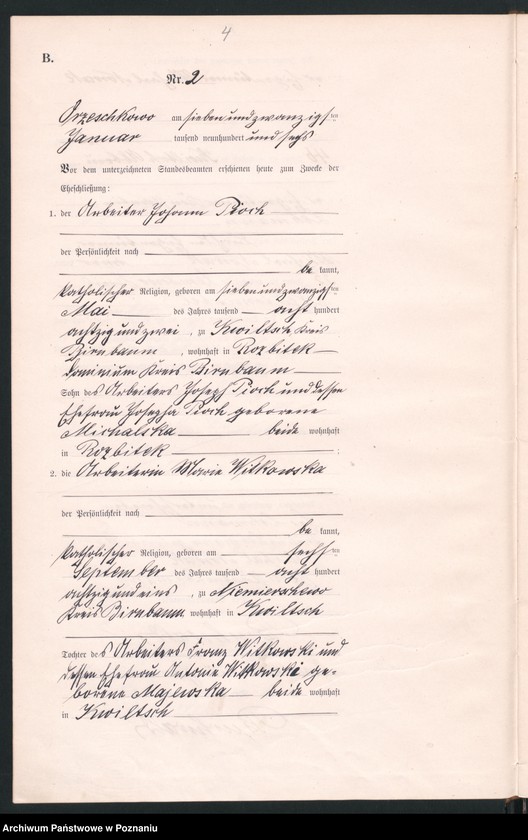 4
B.
Nr. 2
Orzeschkowo am siebenundzwanzigsten
Januar tausend neunhundert und sechs
Vor dem unterzeichneten Standesbeamten erschienen heute zum Zwecke der
Eheschließung:
1. der Arbeiter Johann Pioch
der Persönlichkeit nach
be kannt,
katholischer Religion, geboren am siebenundzwanzigsten
Mai des Jahres tausend acht hundert
achtzig und zwei, zu Kwiltsch Kreis
Birnbaum, wohnhaft in Rozbitek
Dominium Kreis Birnbaum
Sohn des Arbeiters Joseph Pioch und dessen
Ehefrau Josepha Pioch geborene
Michalska beide wohnhaft
in Rozbitek;
2. die Arbeiterin Marie Witkowska
der Persönlichkeit nach
be kannt,
katholischer Religion, geboren am sechsten
September des Jahres tausend acht hundert
achtzig und eins, zu Niemierschewo
Kreis Birnbaum wohnhaft in Kwiltsch
Tochter des Arbeiters Franz Witkowski und
dessen Ehefrau Antonie Witkowski ge-
borene Majewska beide wohnhaft
in Kwiltsch
Archiwum Państwowe w Poznaniu